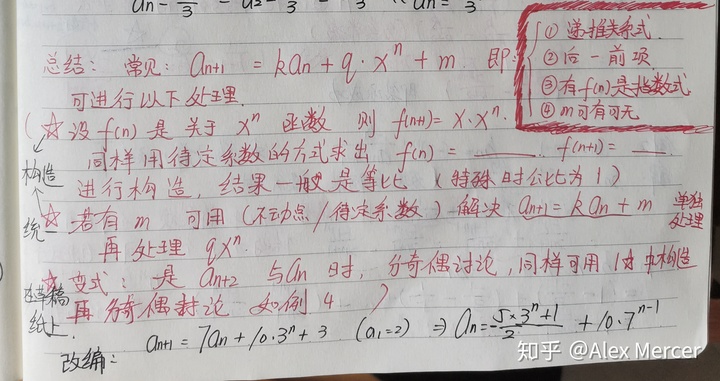 an - /3 a2 - 3 3 an = 3
总结： 常见： an+1 = kan + q·xⁿ + m 即：
① 递推关系式
② 后一前项
③ 有f(n)是指数式
④ m可有可无
可进行以下处理.
( ☆ 设 f(n) 是 关于 xⁿ 函数 则 f(n+1) = x·xⁿ.
同样用待定系数的方式求出 f(n) = ____ . f(n+1) = ___
构造
进行构造，结果一般是等比 (特殊时公比为1)
统一
☆ 若有 m 可用 (不动点/待定系数) 解决 an+1 = kan + m 单独处理
再处理 qxⁿ.
☆ 变式： 是 an+2 与an 时，分奇偶讨论，同样可用 1☆ 中构造
再 分奇偶讨论 如例 4 )
草稿
纸上.
改编： an+1 = 7an + 10·3ⁿ + 3 (a1=2) ⇒ an = -5×3ⁿ+1/2 + 10·7ⁿ⁻¹
知乎 @Alex Mercer